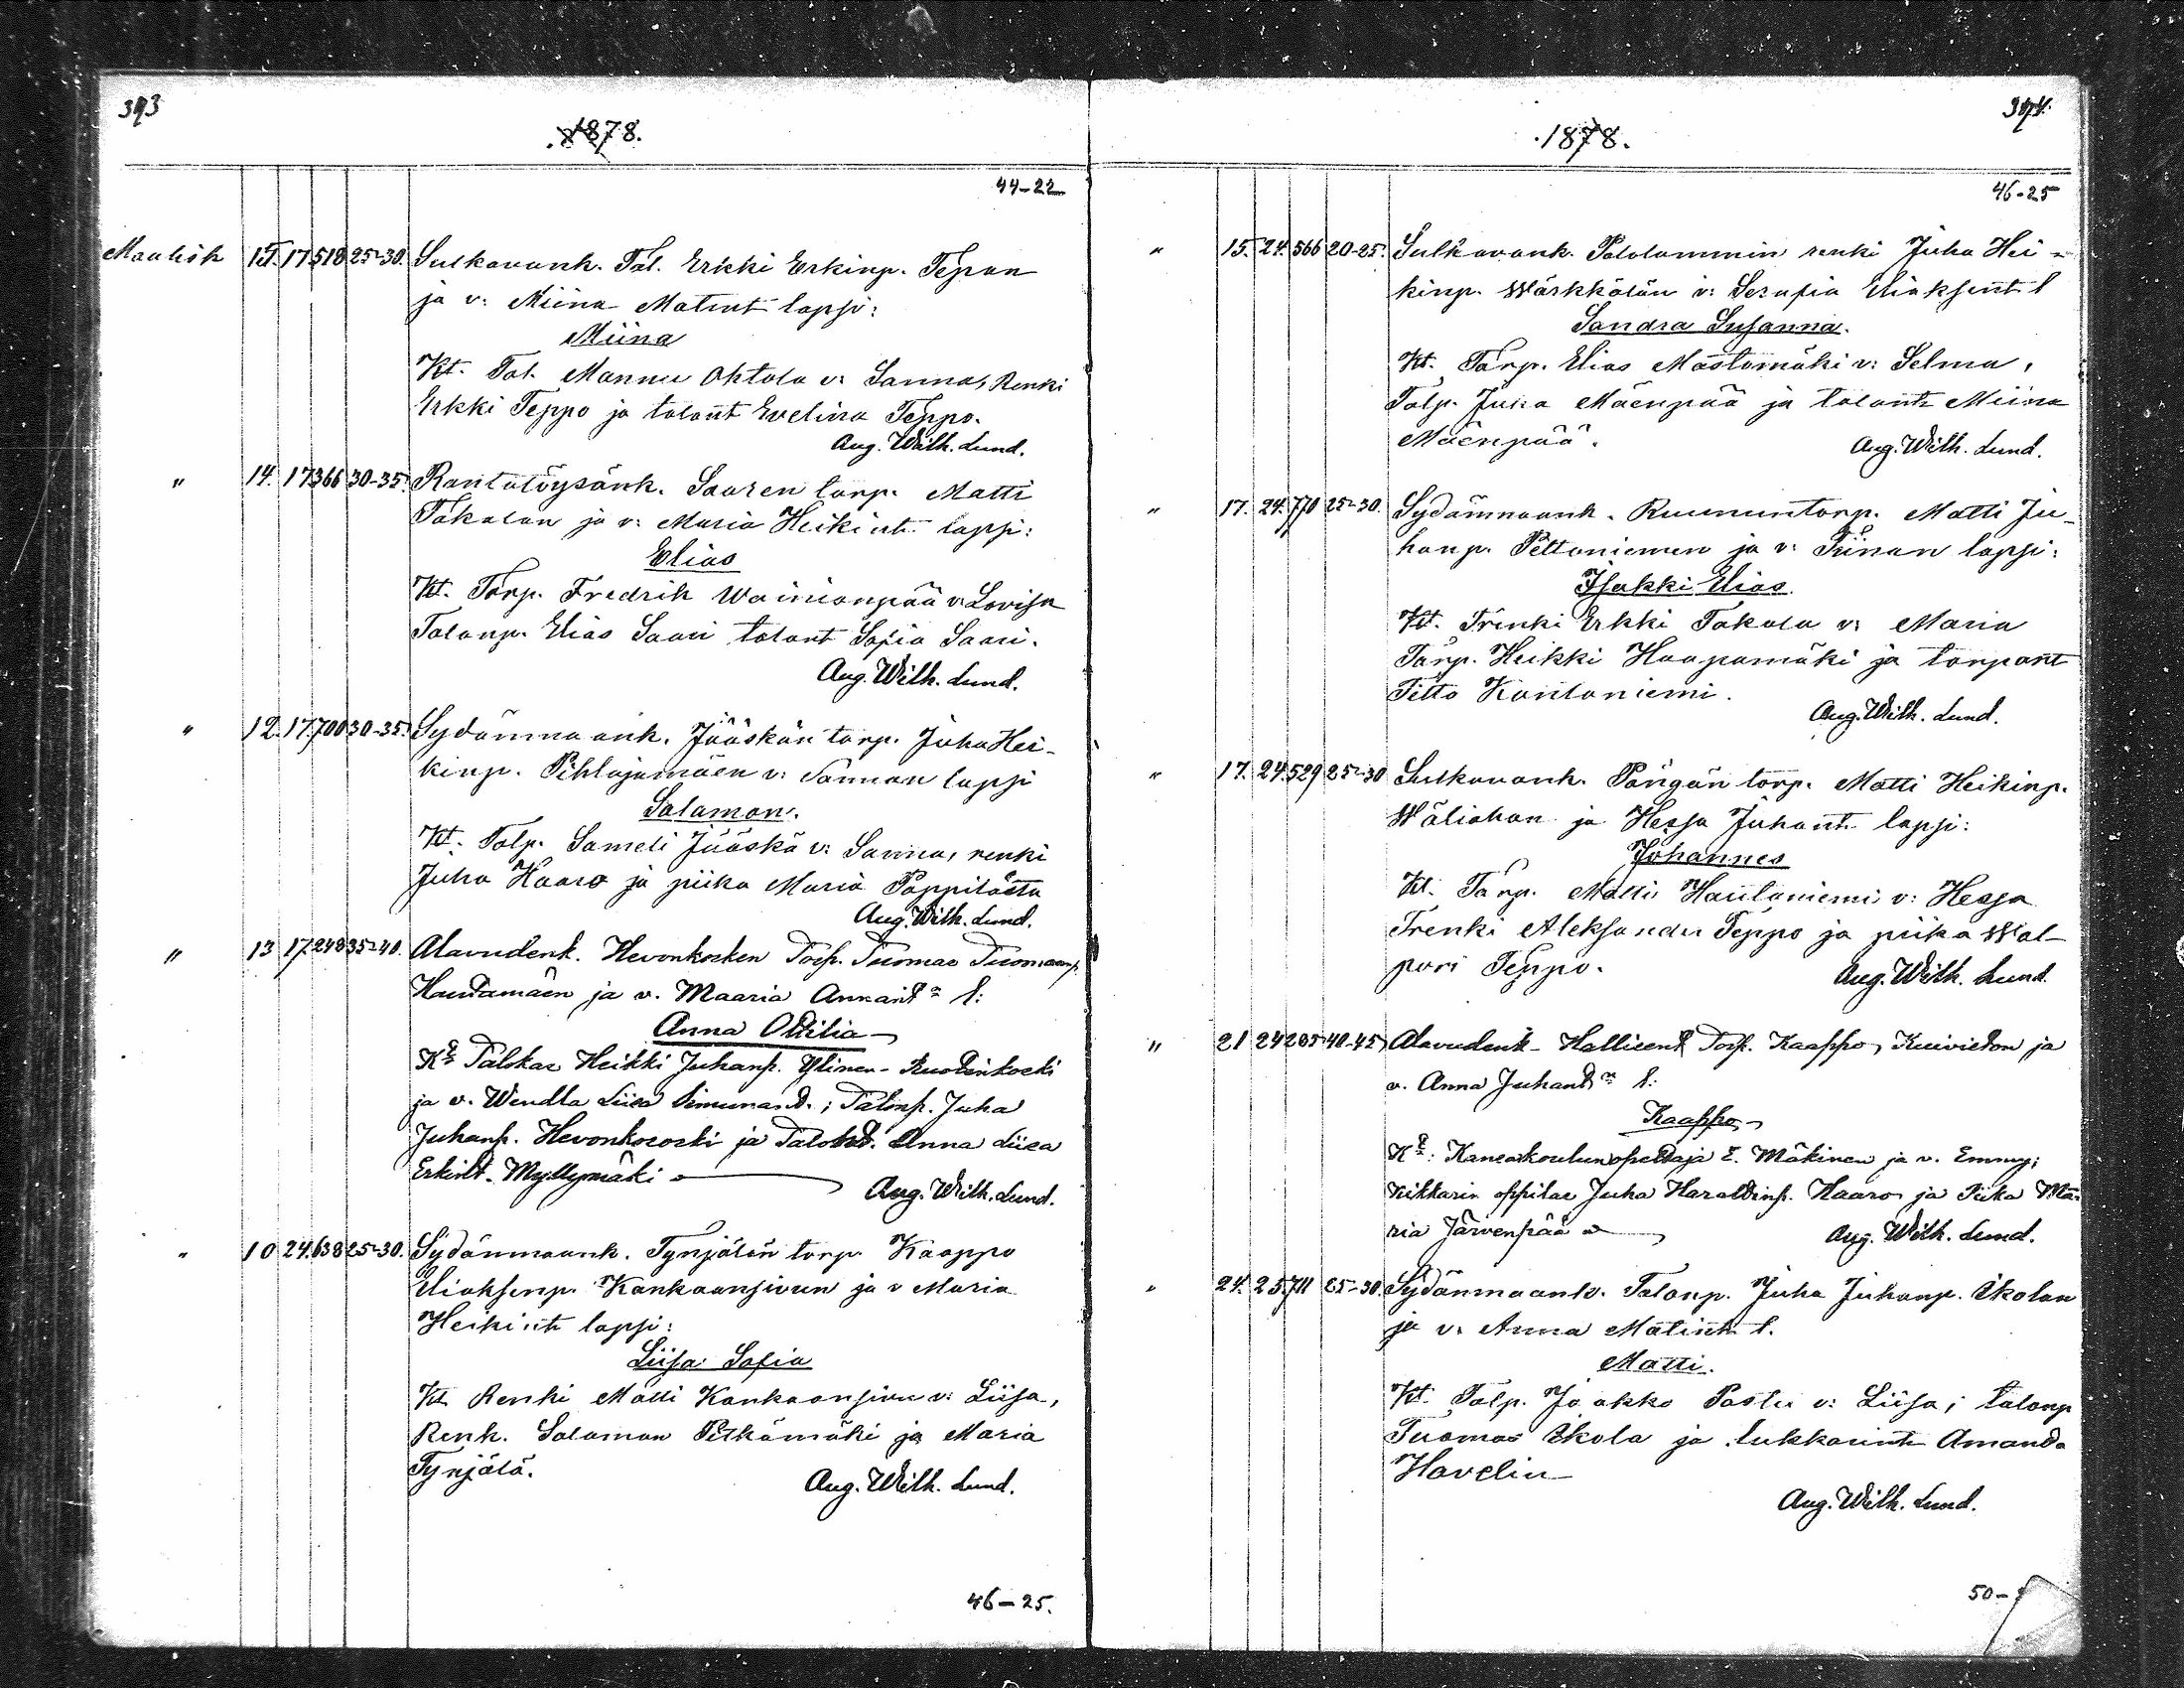 393
1878.
44-22
Maalisk 15. 17 518 25-30. Sulkavank. Tal. Erkki Erkinp. Tepon
ja v: Miina Matint lapsi:
Miina
Kt. Tal. Mannu Ohtola v: Sanna, Renki
Erkki Teppo ja talont Evelina Teppo.
Aug. Wilh. Lund.
" 14. 17 366 30-35. Rantatöysänk. Saaren torp. Matti
Takalan ja v: Maria Heikint lapsi:
Elias
Kt. Torp. Fredrik Wainionpää v: Lovisa
Talonp. Elias Saari talont Sofia Saari.
Aug. Wilh. Lund.
" 12. 17. 700 30-35. Sydänmaank. Jääskän torp. Juha Hei-
kinp. Pihlajamäen v: Sannan lapsi
Salamon.
Kt. Talp. Sameli Jääskä v: Sanna, renki
Juha Haaro ja piika Maria Pappilasta
Aug. Wilh. Lund.
" 13 17. 248 35-40. Alavudenk. Hevonkosken Torp. Tuomas Tuomaanp.
Hautamäen ja v. Maaria Annain l:
Anna Ottilia
Kt Talokas Heikki Juhanp. Ylinen-Ruotinkoski
ja v. Wendla Liisa Simunand.; Talonp. Juha
Juhanp. Hevonkososki ja Talokt. Anna Liisa
Erkint. Myllymäki
Aug. Wilh. Lund.
" 10 24. 638 25-30. Sydänmaank. Tynjälän torp. Kaappo
Eliaksenp. Kankaansivun ja v Maria
Heikint lapsi:
Liisa Sofia
Kt Renki Matti Kankaansivu v: Liisa,
Renk. Salamon Pitkämäki ja Maria
Tynjälä.
Aug. Wilh. Lund.
46-25.
394.
1878.
46-25
" 15. 24. 566 20-25. Sulkavank. Patolammin renki Juha Hei-
kinp. Wärkkälän v: Serafia Eliaksent l
Sandra Susanna.
Kt. Torp. Elias Mastomäki v: Selma,
Talp. Juha Mäenpää ja talont Miina
Mäenpää.
Aug. Wilh. Lund.
" 17. 24. 770 25-30. Sydämnaank. Ruununtorp. Matti Ju-
hanp. Peltoniemen ja v: Tiinan lapsi:
Isakki Elias.
Kt. Trenki Erkki Takala v: Maria
Torp. Heikki Haapamäki ja torpant
Titta Kantoniemi.
Aug. Wilh. Lund.
" 17. 24. 529 25-30 Sulkavank. Pangan torp. Matti Heikinp.
Wäliahon ja Hessa Juhant lapsi:
Johannes
Kt. Torp. Matti Hautaniemi v: Hessa
Trenki Aleksander Teppo ja piika Wal-
pori Teppo.
Aug. Wilh. Lund.
" 21 24 205 40-45. Alavudenk- Torp. Kaappo Kuiviston ja
v. Anna Juhant l:
Kaappo
Kt: Kansakoulunopettaja E. Mäkinen ja v. Emmy;
oppilas Juha Haraldinp. Haaro ja Piika Ma-
ria Järvenpää
Aug. Wilh. Lund.
" 24. 25. 711 25-30. Sydänmaank. Talonp. Juha Juhanp. Ikolan
ja v: Anna Matint l.
Matti.
Kt. Talp. Jaakko Pastu v: Liisa; talonp
Tuomas Ikola ja lukkarint Amanda
Havelin
Aug. Wilh. Lund.
50-